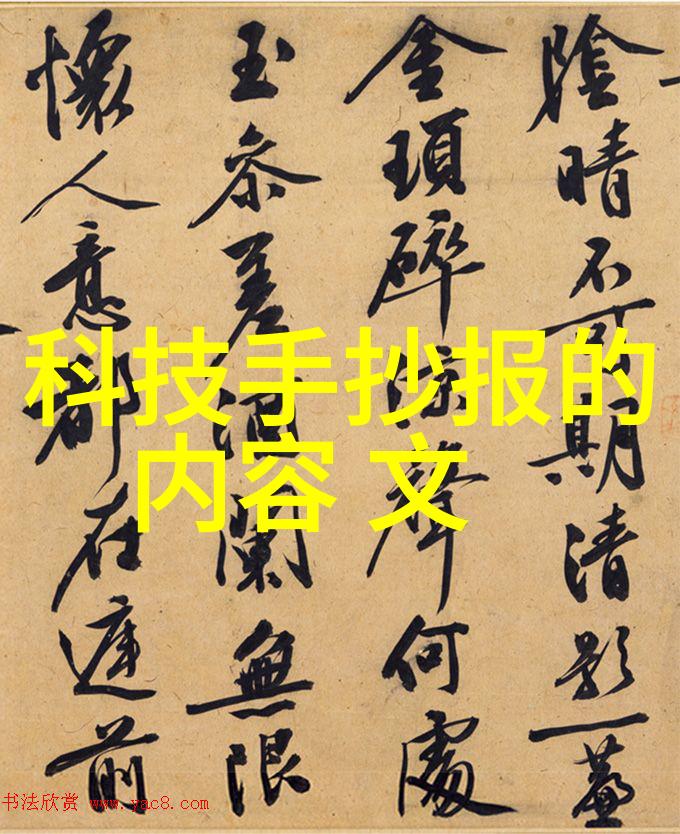 陰晴不可期清影一簾
金瑣碎涼聲何處
玉參差酒闌無限
懷人意都在庭前
科技手抄报的
内容 文
书法欣赏 www.yac8.com